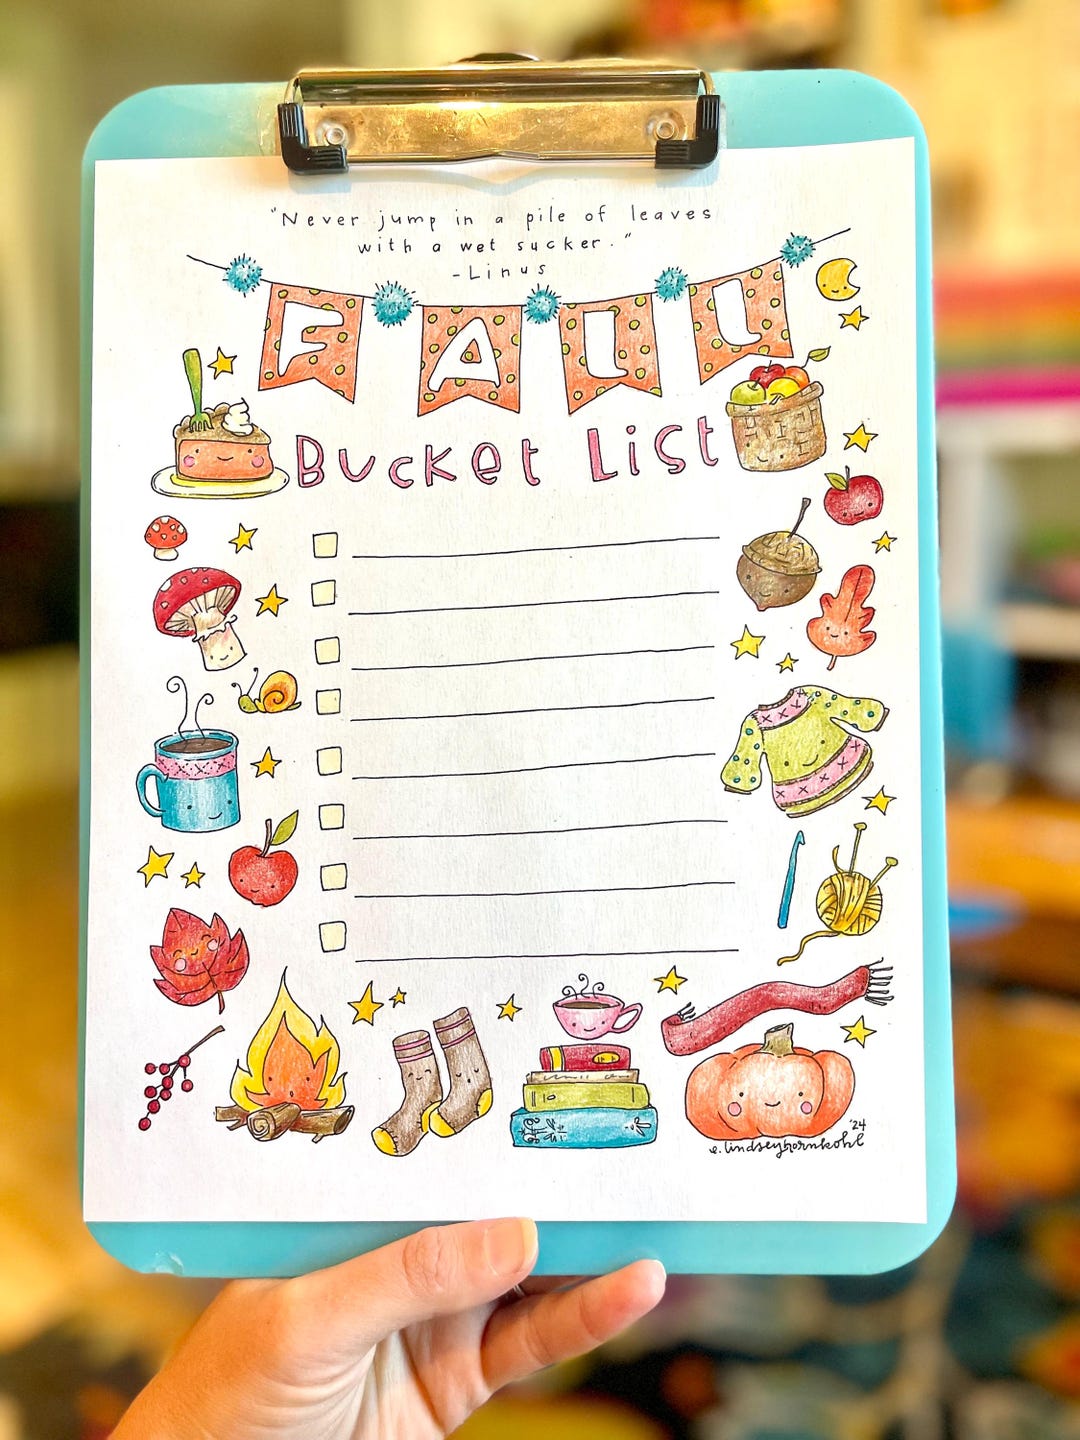 "Never jump in a pile of leaves
with a wet sucker."
-Linus
FALL
Bucket List
'24
e. lindseyhornkohl